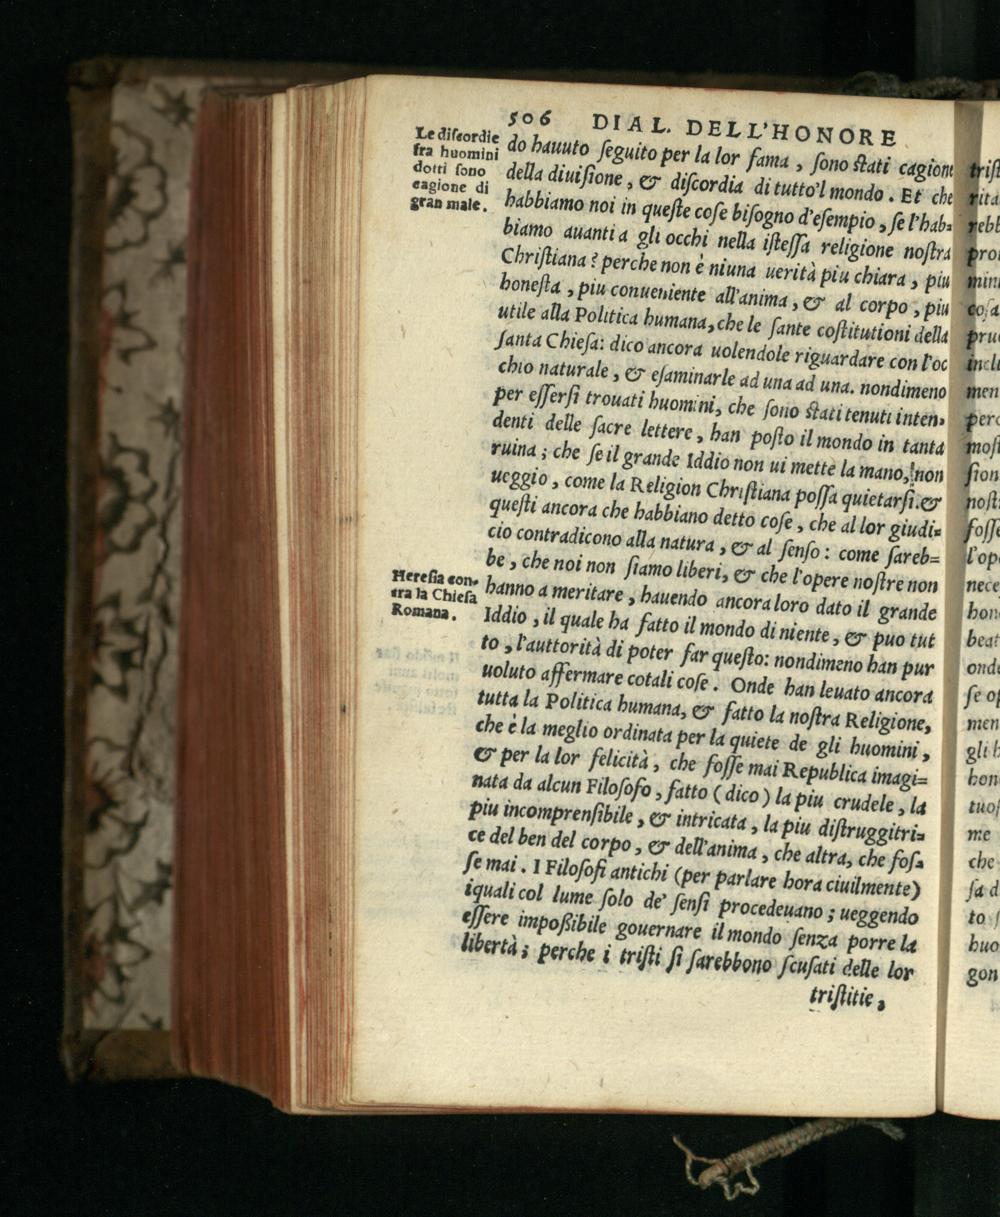 506 DIAL. DELL'HONORE
Le discordie
fra huomini
dotti sono
cagione di
gran male.
do hauuto ſeguito per la lor fama, ſono ſtati cagione
della diuiſione, & diſcordia di tutto'l mondo. Et che
habbiamo noi in queſte coſe biſogno d'eſempio, ſe l'hab-
biamo auanti a gli occhi nella iſteſſa religione noſtra
Chriſtiana? perche non è niuna uerità piu chiara, piu
honeſta, piu conueniente all'anima, & al corpo, piu
utile alla Politica humana, che le ſante coſtitutioni della
ſanta Chieſa: dico ancora uolendole riguardare con l'oc
chio naturale, & eſaminarle ad una ad una. nondimeno
per eſſerſi trouati huomini, che ſono ſtati tenuti inten-
denti delle ſacre lettere, han poſto il mondo in tanta
ruina; che ſe il grande Iddio non ui mette la mano, non
ueggio, come la Religion Chriſtiana poſſa quietarſi. &
queſti ancora che habbiano detto coſe, che al lor giudi-
cio contradicono alla natura, & al ſenſo: come ſareb-
be, che noi non ſiamo liberi, & che l'opere noſtre non
Hereſia con-
tra la Chieſa
Romana.
hanno a meritare, hauendo ancora loro dato il grande
Iddio, il quale ha fatto il mondo di niente, & puo tut
to, l'auttorità di poter far queſto: nondimeno han pur
uoluto affermare cotali coſe. Onde han leuato ancora
tutta la Politica humana, & fatto la noſtra Religione,
che è la meglio ordinata per la quiete de gli huomini,
& per la lor felicità, che foſſe mai Republica imagi-
nata da alcun Filoſofo, fatto (dico) la piu crudele, la
piu incomprenſibile, & intricata, la piu diſtruggitri-
ce del ben del corpo, & dell'anima, che altra, che foſ-
ſe mai. I Filoſofi antichi (per parlare hora ciuilmente)
iquali col lume ſolo de' ſenſi procedeuano; ueggendo
eſſere impoßibile gouernare il mondo ſenza porre la
libertà; perche i triſti ſi ſarebbono ſcuſati delle lor
triſtitie,